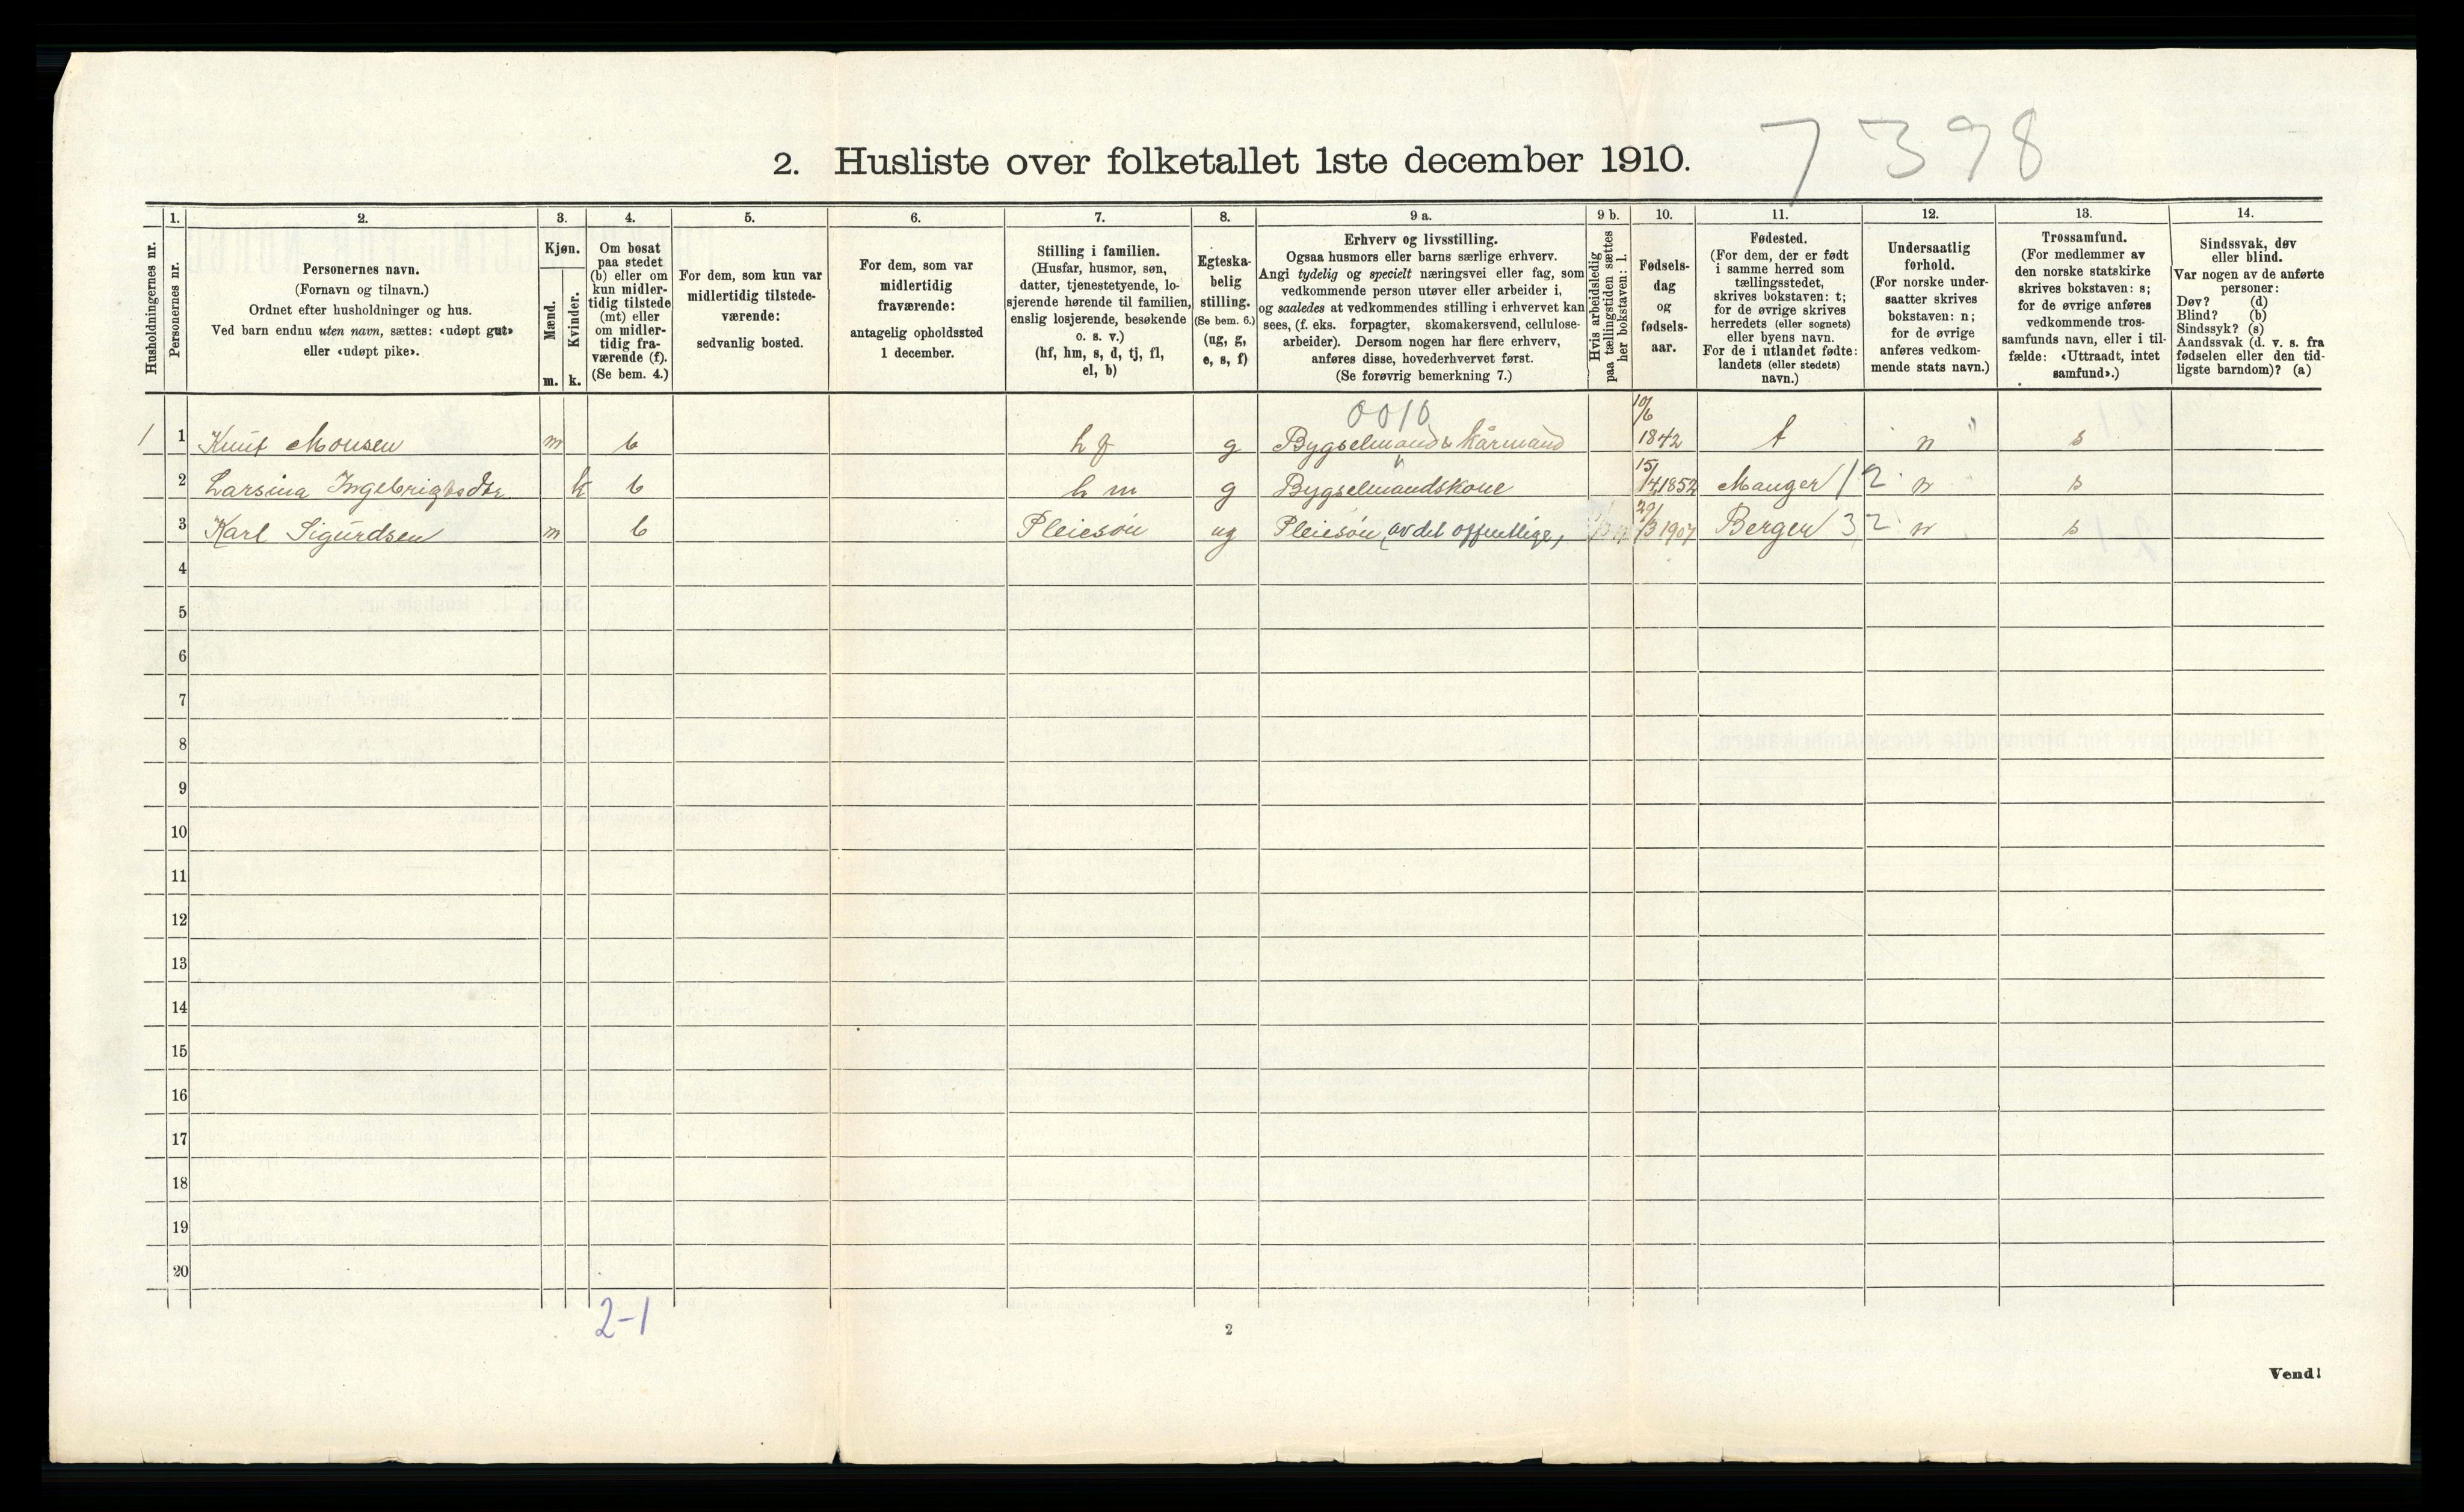 7398
2. Husliste over folketallet 1ste december 1910.
Husholdningernes nr.
1.
Personernes nr.
2.
Personernes navn.
(Fornavn og tilnavn.)
Ordnet efter husholdninger og hus.
Ved barn endnu uten navn, sættes: «udøpt gut»
eller «udøpt pike».
3.
Kjøn.
Mænd.
Kvinder.
m. k.
4.
Om bosat
paa stedet
(b) eller om
kun midler-
tidig tilstede
(mt) eller
om midler-
tidig fra-
værende (f).
(Se bem. 4.)
5.
For dem, som kun var
midlertidig tilstede-
værende:
sedvanlig bosted.
6.
For dem, som var
midlertidig
fraværende:
antagelig opholdssted
1 december.
7.
Stilling i familien.
(Husfar, husmor, søn,
datter, tjenestetyende, lo-
sjerende hørende til familien,
enslig losjerende, besøkende
o. s. v.)
(hf, hm, s, d, tj, fl,
el, b)
8.
Egteska-
belig
stilling.
(Se bem. 6.)
(ug, g,
e, s, f)
9 a.
Erhverv og livsstilling.
Ogsaa husmors eller barns særlige erhverv.
Angi tydelig og specielt næringsvei eller fag, som
vedkommende person utøver eller arbeider i,
og saaledes at vedkommendes stilling i erhvervet kan
sees, (f. eks. forpagter, skomakersvend, cellulose-
arbeider). Dersom nogen har flere erhverv,
anføres disse, hovederhvervet først.
(Se forøvrig bemerkning 7.)
9 b.
Hvis arbeidsledig
paa tællingstiden sættes
her bokstaven: l.
10.
Fødsels-
dag
og
fødsels-
aar.
11.
Fødested.
(For dem, der er født
i samme herred som
tællingsstedet,
skrives bokstaven: t;
for de øvrige skrives
herredets (eller sognets)
eller byens navn.
For de i utlandet fødte:
landets (eller stedets)
navn.)
12.
Undersaatlig
forhold.
(For norske under-
saatter skrives
bokstaven: n;
for de øvrige
anføres vedkom-
mende stats navn.)
13.
Trossamfund.
(For medlemmer av
den norske statskirke
skrives bokstaven: s;
for de øvrige anføres
vedkommende tros-
samfunds navn, eller i til-
fælde: «Uttraadt, intet
samfund».)
14.
Sindssvak, døv
eller blind.
Var nogen av de anførte
personer:
Døv? (d)
Blind? (b)
Sindssyk? (s)
Aandssvak (d. v. s. fra
fødselen eller den tid-
ligste barndom)? (a)
0010
1 1 Knut Monsen m b hf g Bygselmand & Kårmand 10/6 1842 t n s
2 Larsina Ingebrigtsdtr k b hm g Bygselmandskone 15/4 1852 Manger 12 n s
3 Karl Sigurdsen m b Pleiesön ug Pleiesön (av det offentlige) 29/3 1907 Bergen 32 n s
4
5
6
7
8
9
10
11
12
13
14
15
16
17
18
19
20
2-1
2
Vend!